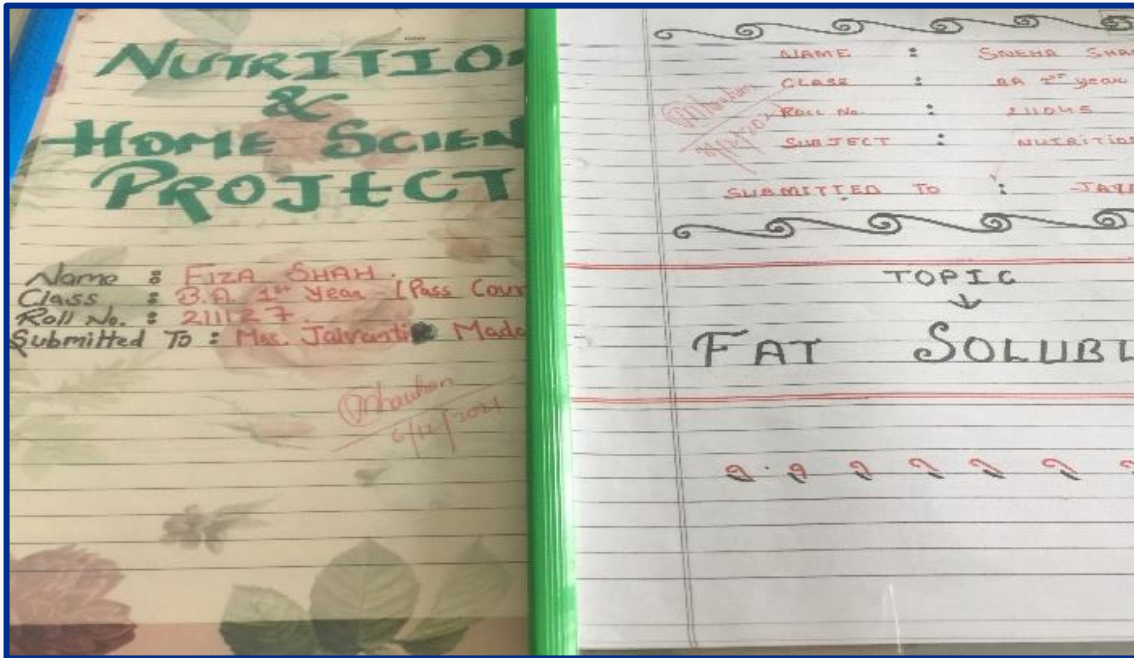 NUTRITIO
&
HOME SCIEN
PROJECT
Name : FIZA SHAH.
Class : B.A. 1st Year (Pass Cour
Roll No. : 211127.
Submitted To : Mrs. Jaivanti Mada
6/12/2021
NAME : SNEHA SHAR
CLASS : BA 1st year
ROLL No. : 211045
SUBJECT : NUTRITION
SUBMITTED TO : JAI
TOPIC
↓
FAT SOLUBL